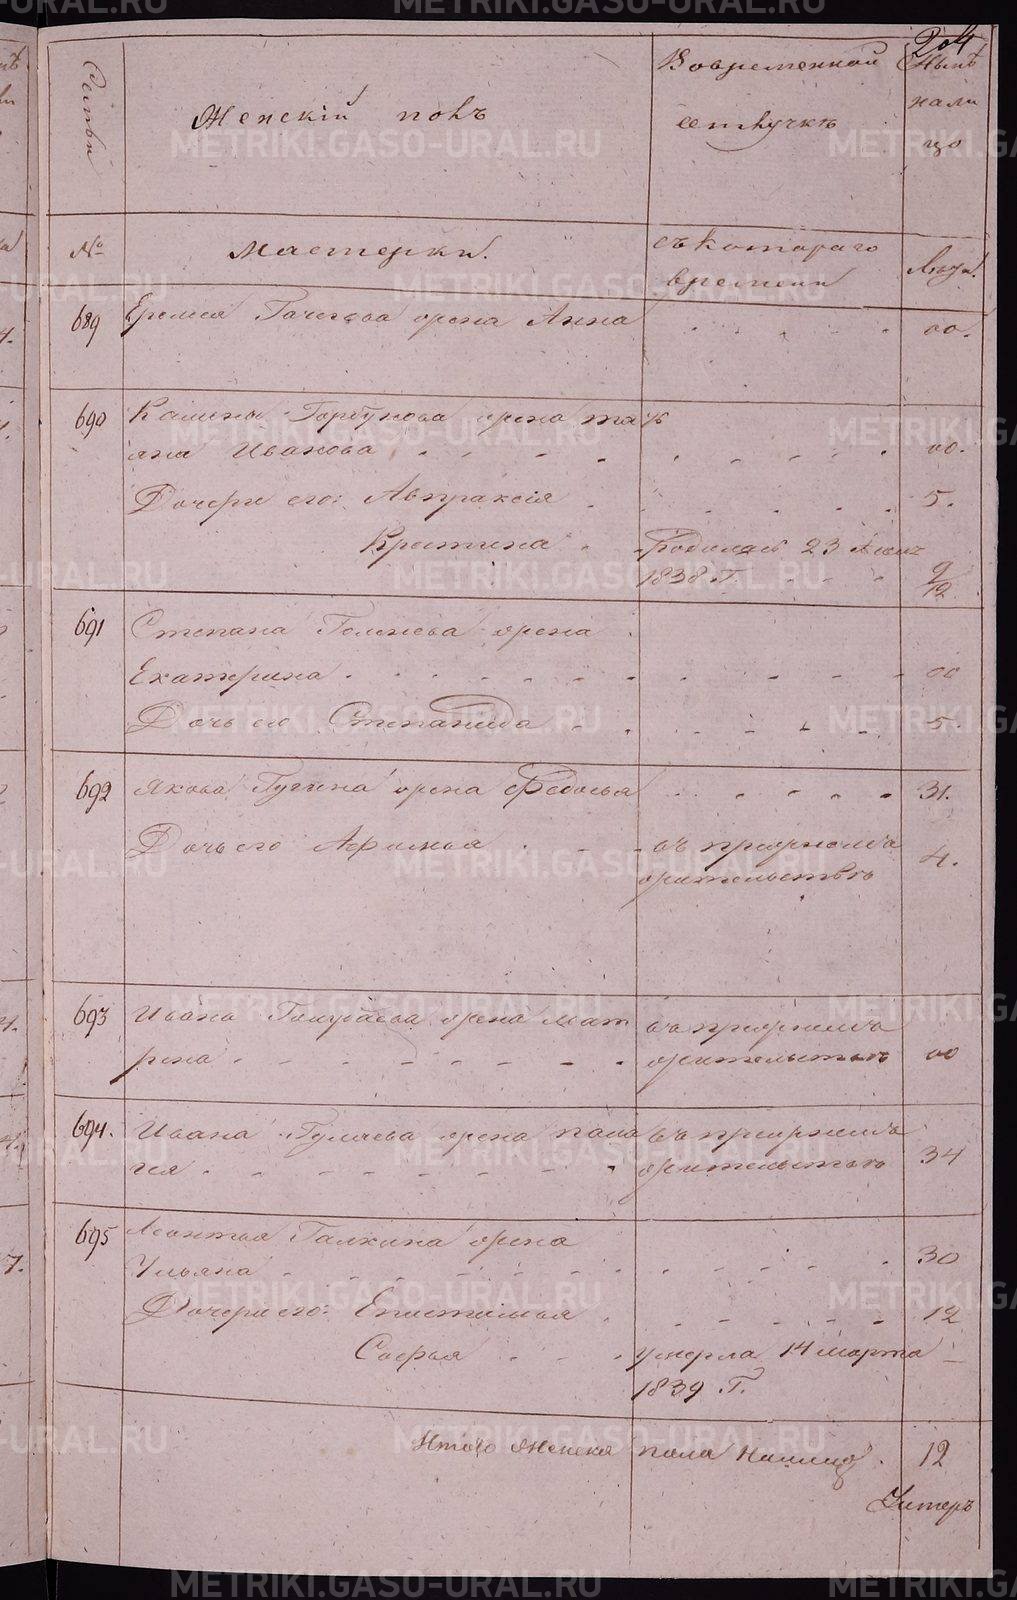 204
Семьи
Женскій полъ
Во временной отлучкѣ
Нынѣ на лицо
№
Мастерки.
съ котораго времени
Лѣта
689
Еремея жена Анна
00.
690
Калины Горбунова жена Тать
яна Иванова
00.
Дочери его: Авпраксія
5.
Кристина
Родилась 23
1838 Г.
9/12
691
Степана жена
Екатерина
00
Дочь его Степанида
5.
692
Якова жена Федосья
31.
Дочь его Афимья
въ прежнемъ
жительствѣ
4.
693
Ивана жена Мат
рена
въ прежнемъ
жительствѣ
00
694.
Ивана Гуляева жена Пала
гея
въ прежнемъ
жительствѣ
34
695
Леонтья Галкина жена
Ульяна
30
Дочери его: Епистимья
12
Софья
умерла 14 марта
1839 Г.
Итого женска пола на лицо
12
METRIKI.GASO-URAL.RU